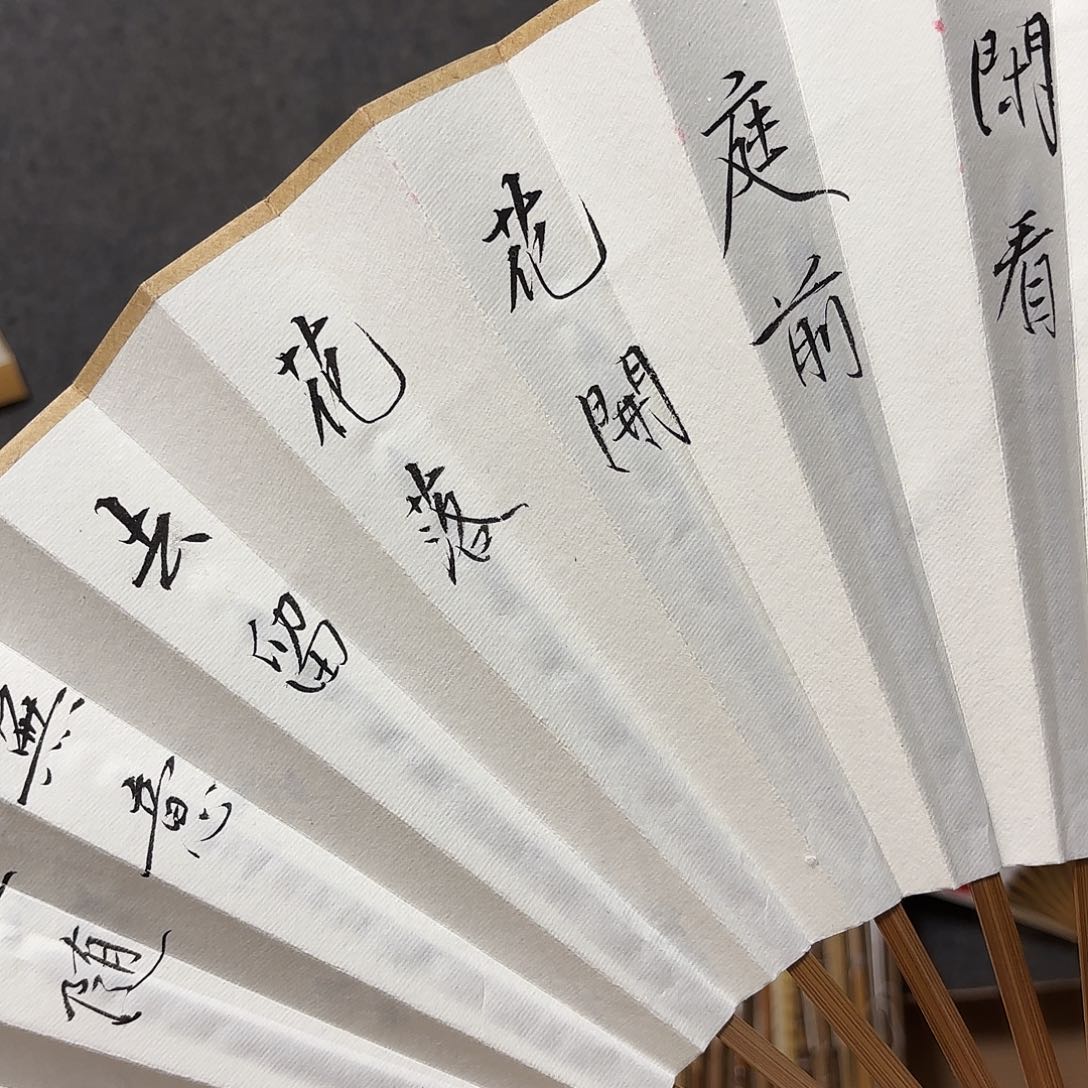 閑看
庭前
花開
花落
去留
無意
隨